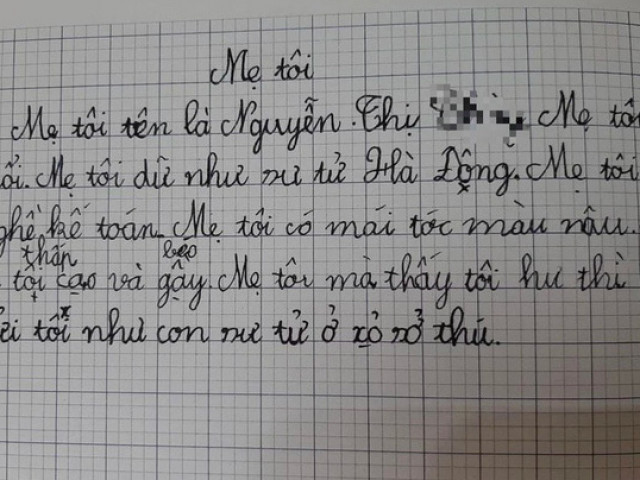 Mẹ tôi
Mẹ tôi tên là Nguyễn Thị Mẹ tôi
ổi. Mẹ tôi dữ như sư tử Hà Động. Mẹ tôi
ghề kế toán. Mẹ tôi có mái tóc màu nâu.
thấp béo
tôi cao và gầy. Mẹ tôi mà thấy tôi hư thì
tôi như con sư tử ở xỏ sở thú.